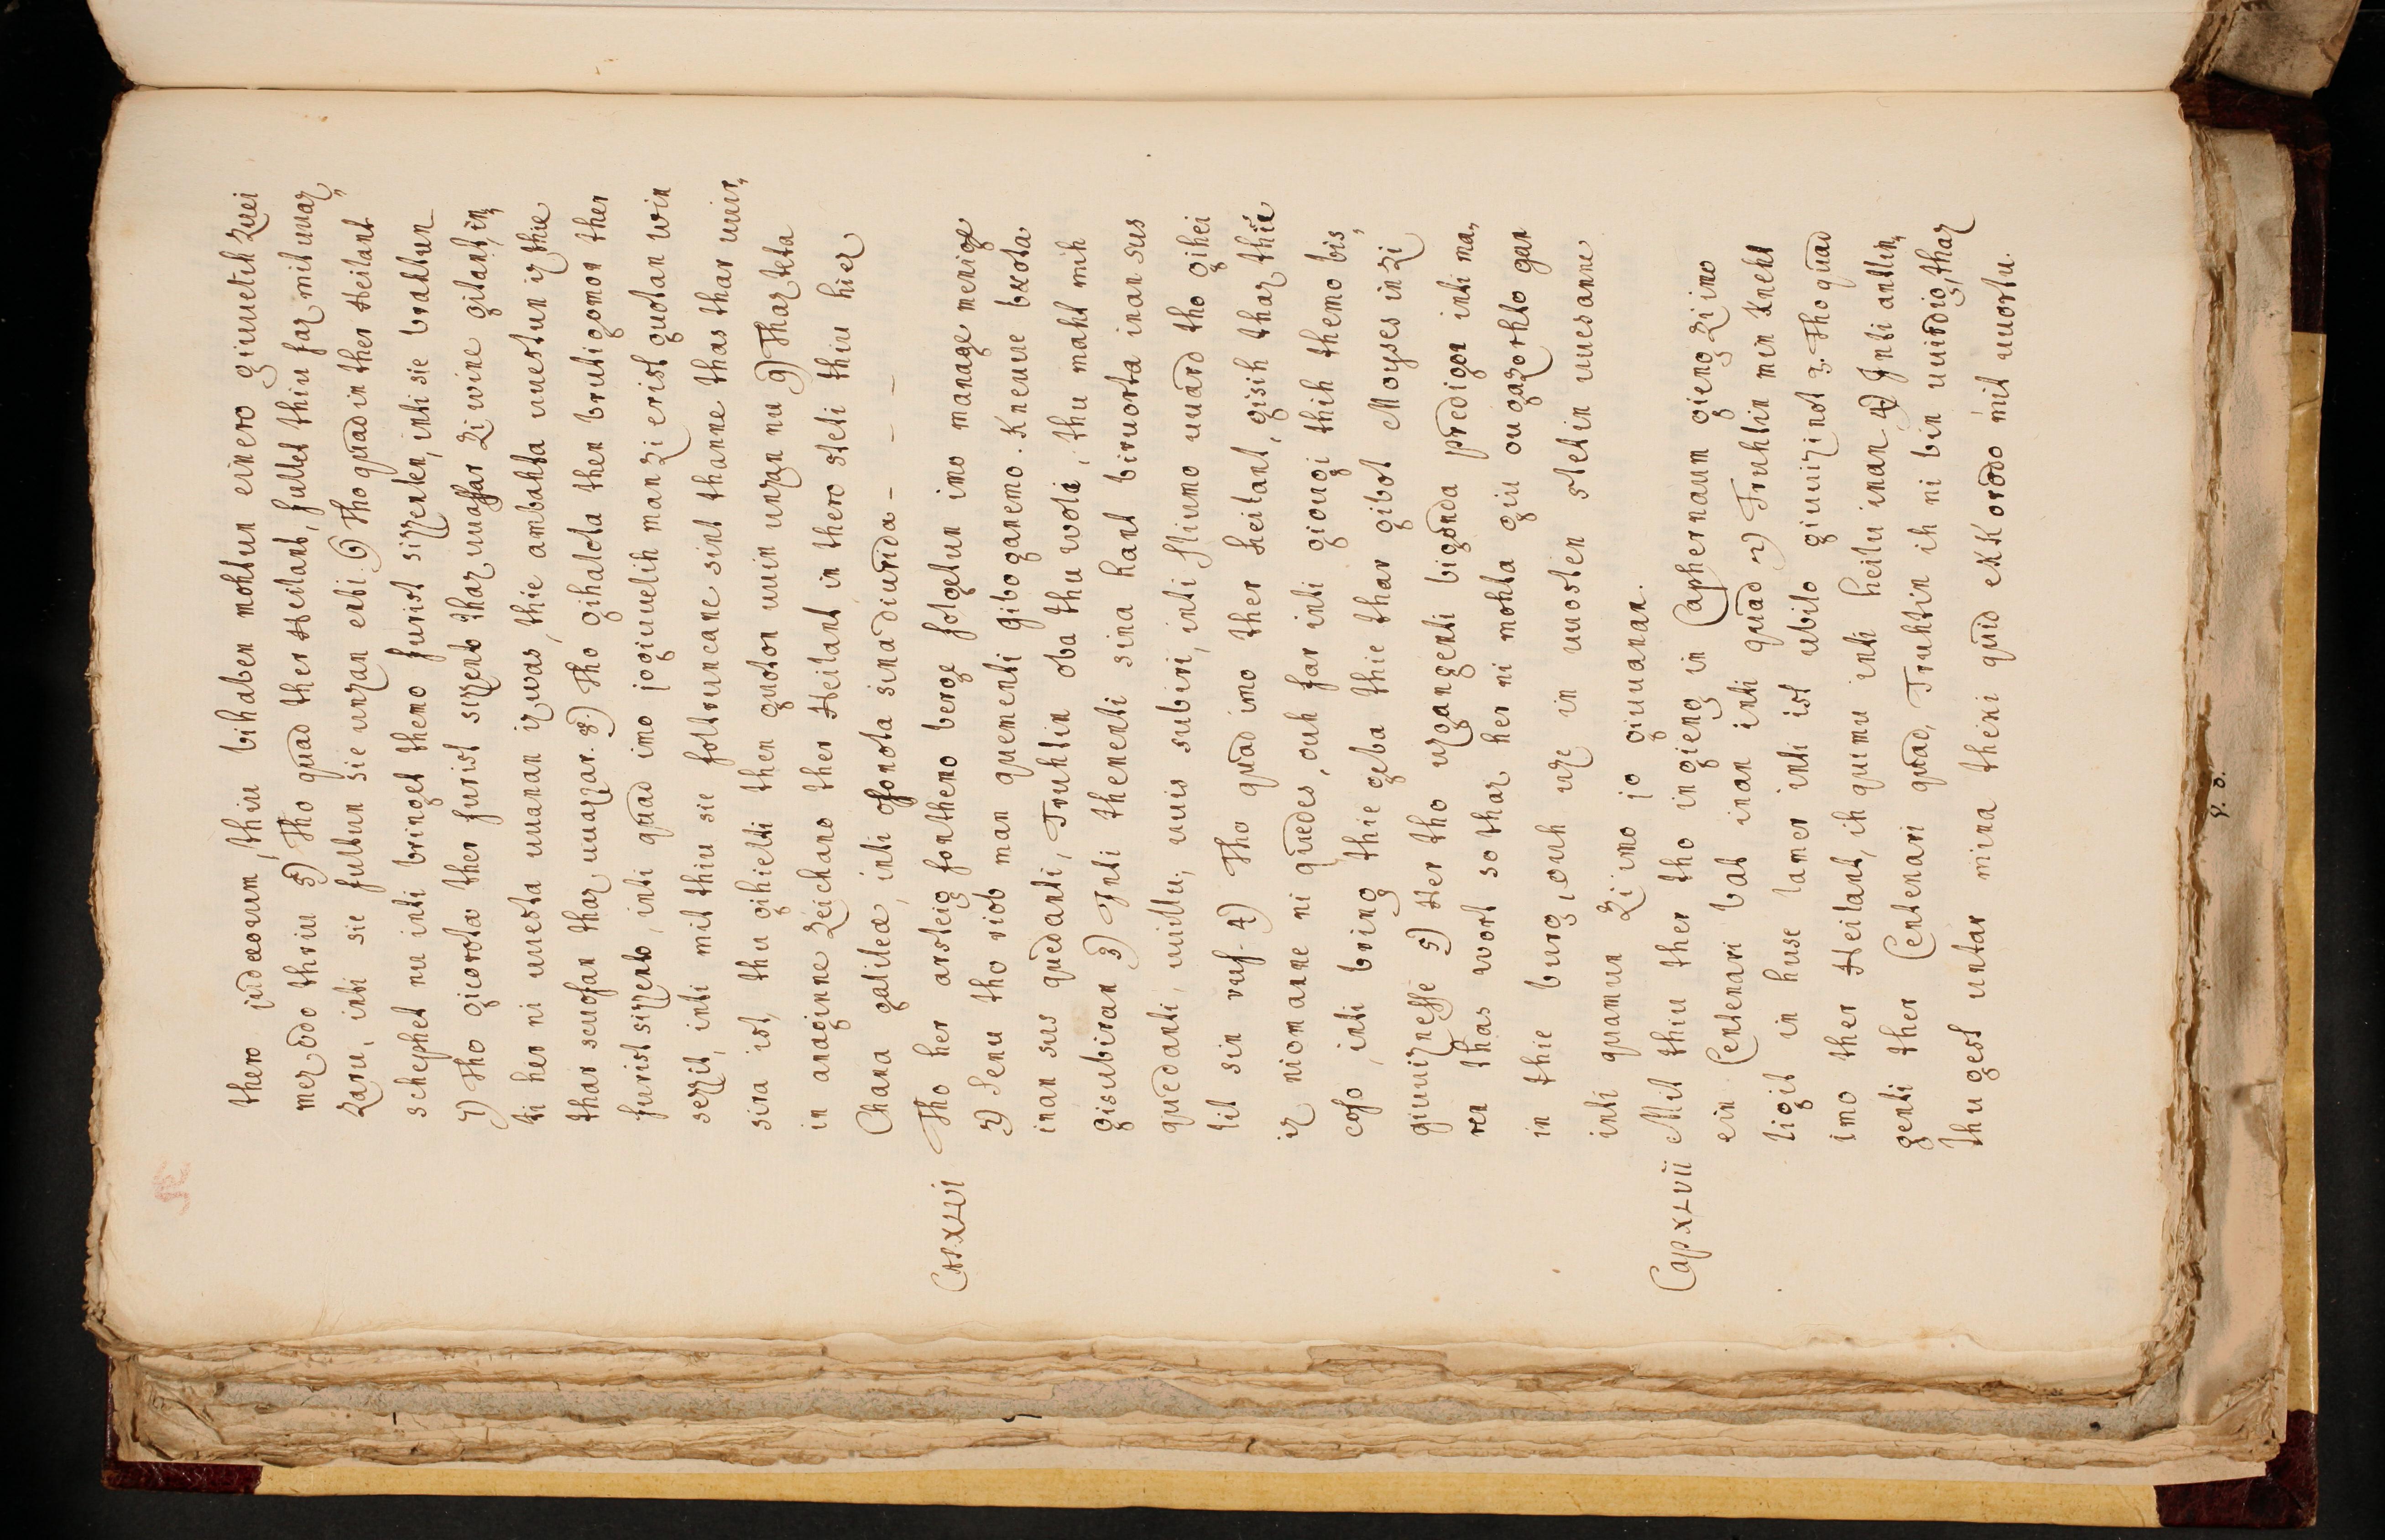 thero judæorum, thiu bihaben mohtun einero giuuelih zuei
mez odo thriu 5) Tho quad ther Heilant, fullet thiu faz mit uuaz„
zaru, inti sie fultun sie unzan enti. 6) Tho quad in ther Heilant
schephet nu inti bringet themo furist sizzenten, inti sie brahtun
7) Tho gicorota ther furist sizento thaz uuaffar zi wine gitant, in„
ti her ni uuesta uuanan iz was, thie ambahta uuestun iz thie
thar scuofan thaz uuazzar. 8.) Tho gihalota then brutigomon ther
furist sizzento, inti quad imo jogiuuelih man zi erist guotan win
sezzit, inti mit thiu sie foltruncane sint thanne thas thar uuir„
sira ist, thu gihielti then guoton uuin unzan nu 9) Thaz teta
in anaginne zeichano ther Heilant in thero steti thiu hiez
Chana galileæ, inti ofonota sina diurida – – – –
Cap. XLVI Tho her arsteig fonthemo berge folgetun imo manage menige
2) Senu tho riob man quementi giboganemo. Kneuue betota
inan sus quedanti, Truhtin oba thu wolá, thu maht mih
gisubiran 3) Inti thenenti sina hant biruorta inan sus
quedanti, uuillu, uuis subiri, inti sliumo uuard tho gihei
lit sin ruf. 4) Tho quad imo ther heilant, gisih thaz thú
iz niomanne ni quedes, ouh far inti giougi thih themo bis„
cofo, inti bring thie geba thie thar gibot Moyses in zi
giuuiznesse 5) Her tho uzgangenti bigonda predigon inti ma„
ren thas wort so thaz her ni mohta giu ougazorhto gan
in thie burg, ouh uze in uuosten stetin uuesanne
inti quamun zi imo io giuuanan.
Cap. XLVII Mit thiu ther tho ingieng in Caphernaum gieng zi imo
ein Centenari bat inan inti quad 2) Truhtin min Kneht
ligit in huse lamer inti ist ubilo giuuizinot 3. Tho quad
imo ther Heilant, ih quimu inti heilu inan. 4) Inti antlin„
genti ther Centenari quad, Truhtin ih ni bin uuirdig, thaz
thu gest untar mina theki quid ekkorodo mit uuortu.